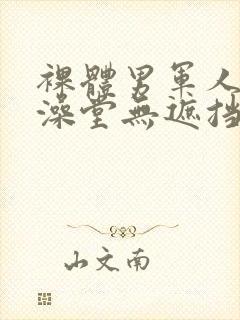 裸體男軍人
澡堂無遮挡
山文南